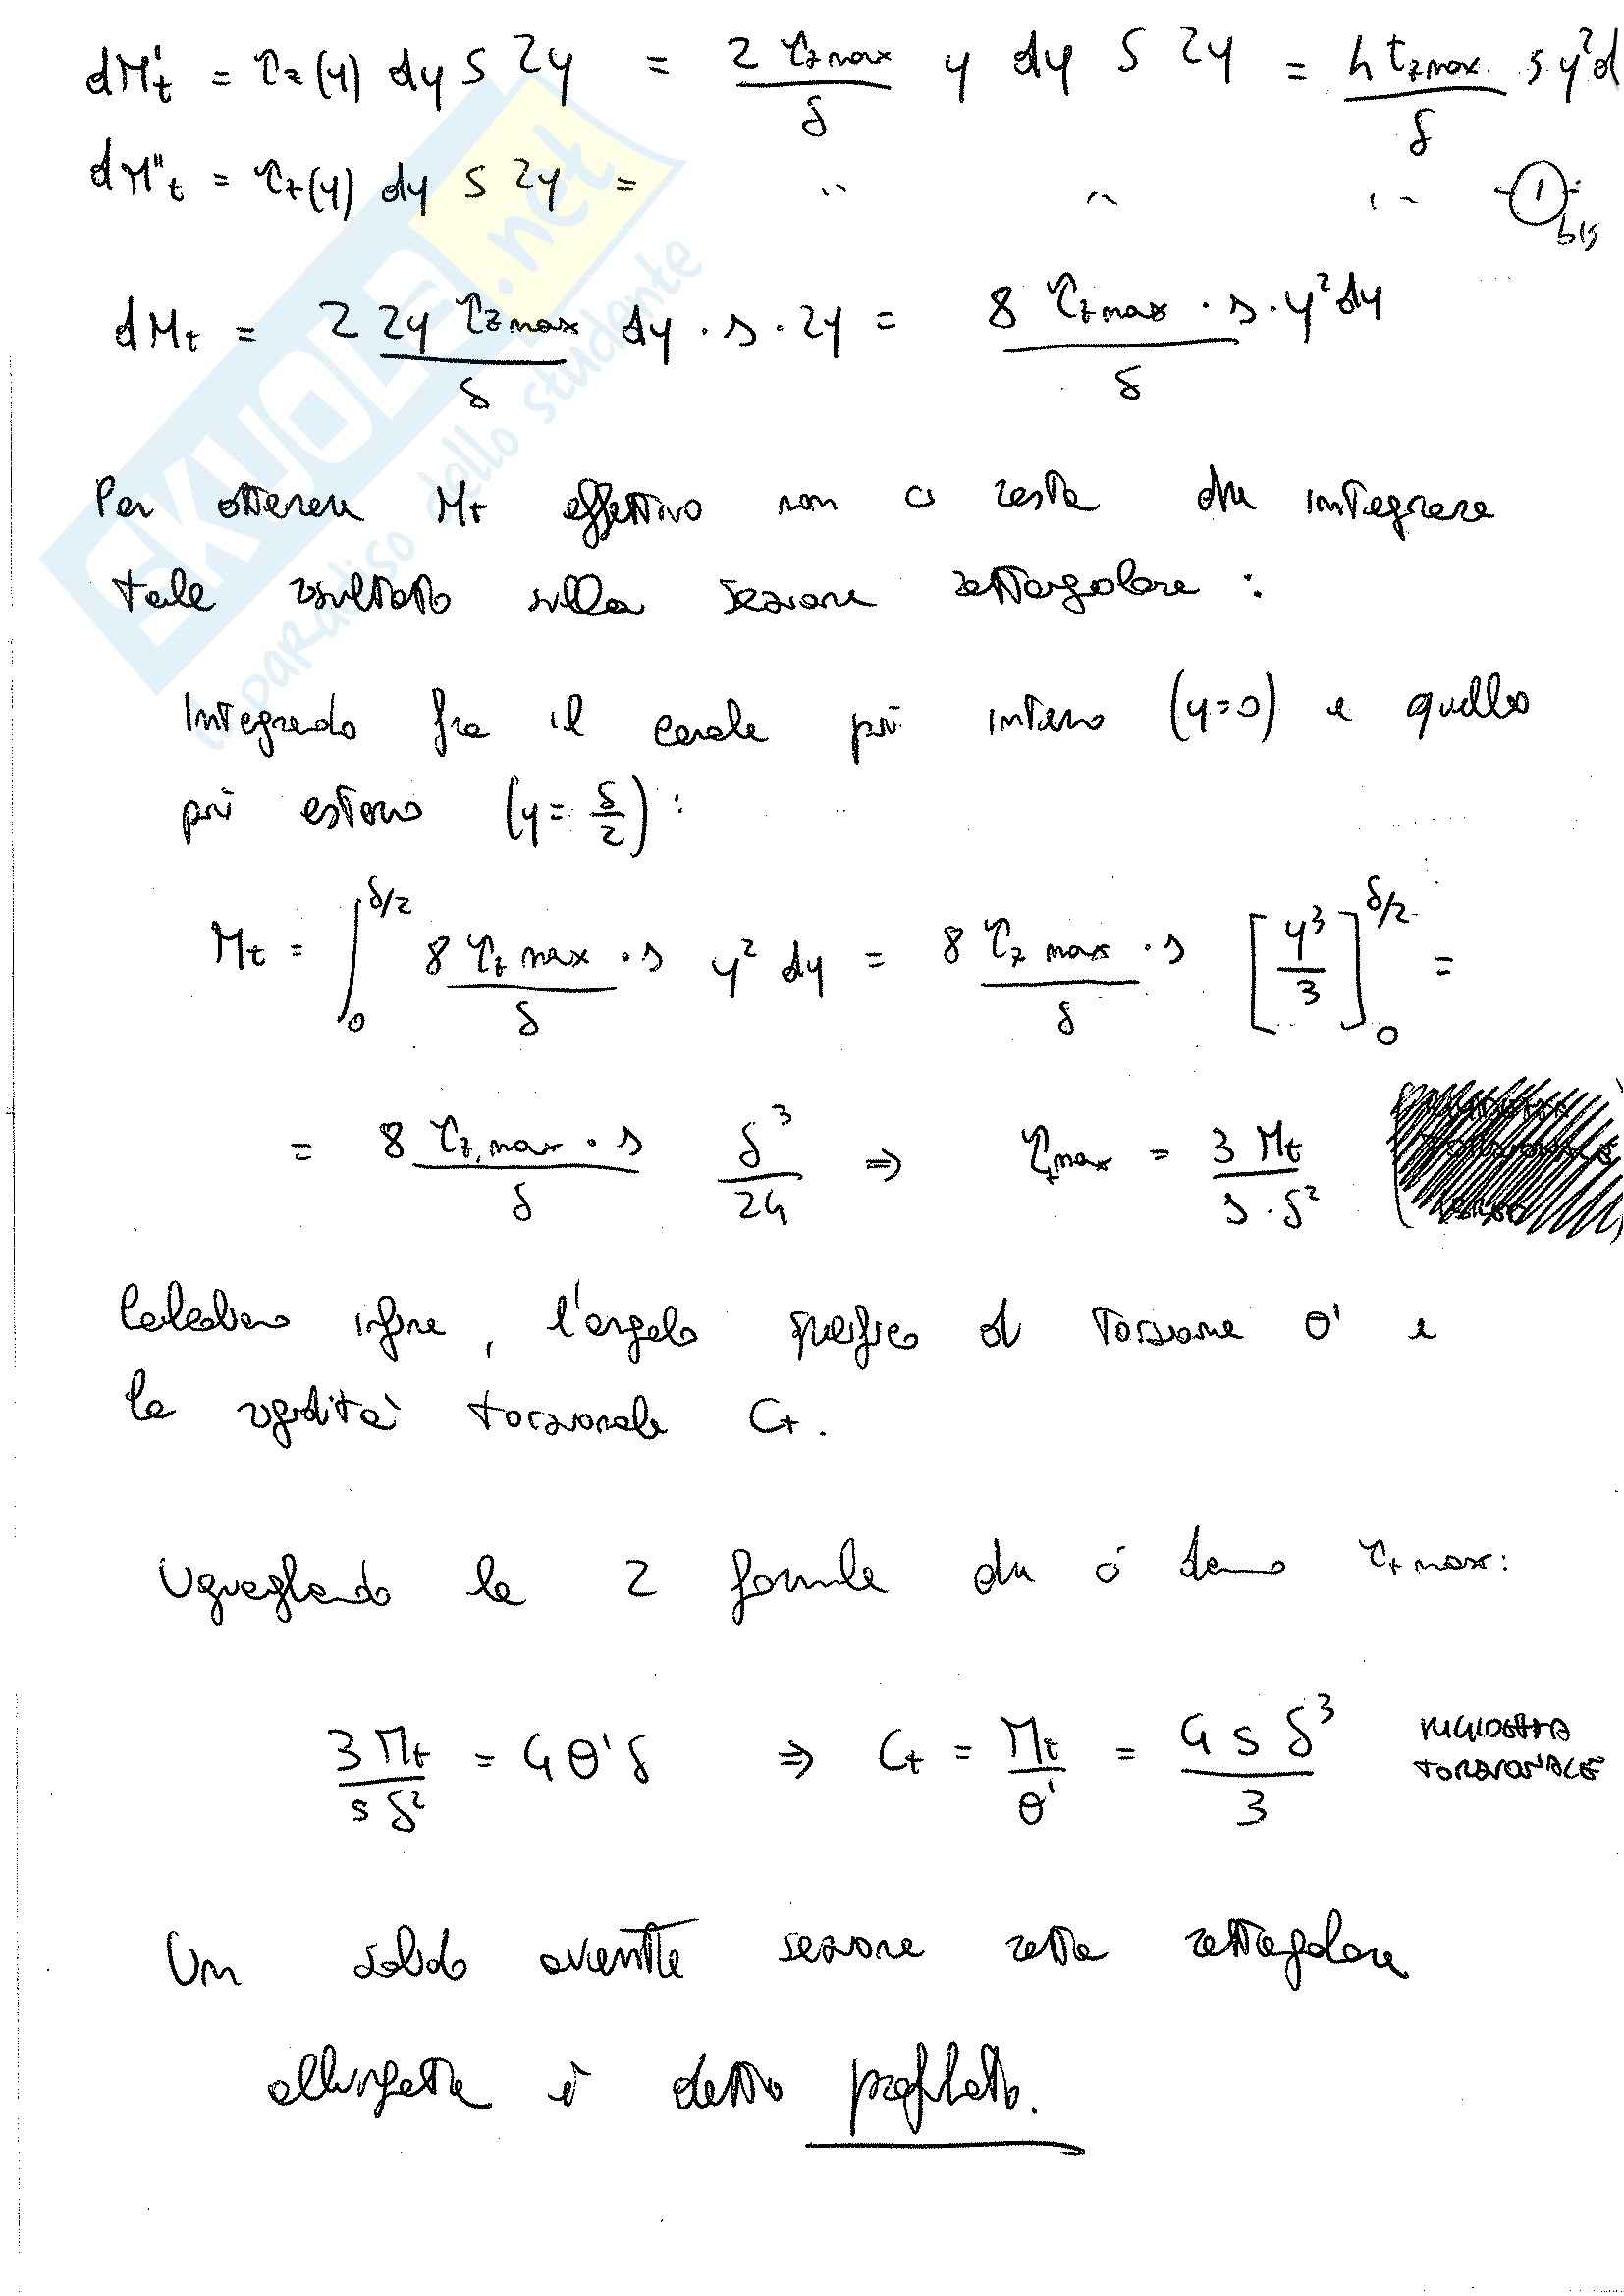 dM't = τz(y) dy s 2y = 2 τzmax/δ y dy s 2y = 4 τzmax/δ s y² d
dM''t = τz(y) dy s 2y = " " " 1 bis
dMt = 2 2y τzmax/δ dy · s · 2y = 8 τzmax · s/δ · y² dy
Per ottenere Mt effettivo non ci resta che integrare
tale risultato sulla sezione rettangolare :
Integrando fra il canale più interno (y=0) e quello
più esterno (y = δ/2) :
Mt = ∫₀^δ/2 8 τz max/δ · s y² dy = 8 τz max/δ · s [y³/3]₀^δ/2 =
= 8 τz,max · s/δ δ³/24 ⇒ τzmax = 3 Mt/s · δ²
Calcoliamo infine, l'angolo specifico di torsione θ' e
la rigidità torsionale Ct.
Uguagliando le 2 formule che ci danno τzmax:
3 Mt/s δ² = G θ' δ ⇒ Ct = Mt/θ' = G s δ³/3 RIGIDEZZA TORSIONALE
Un solido avente sezione retta rettangolare
allungata è detto profilato.
SKUOLA.net
il paradiso dello studente